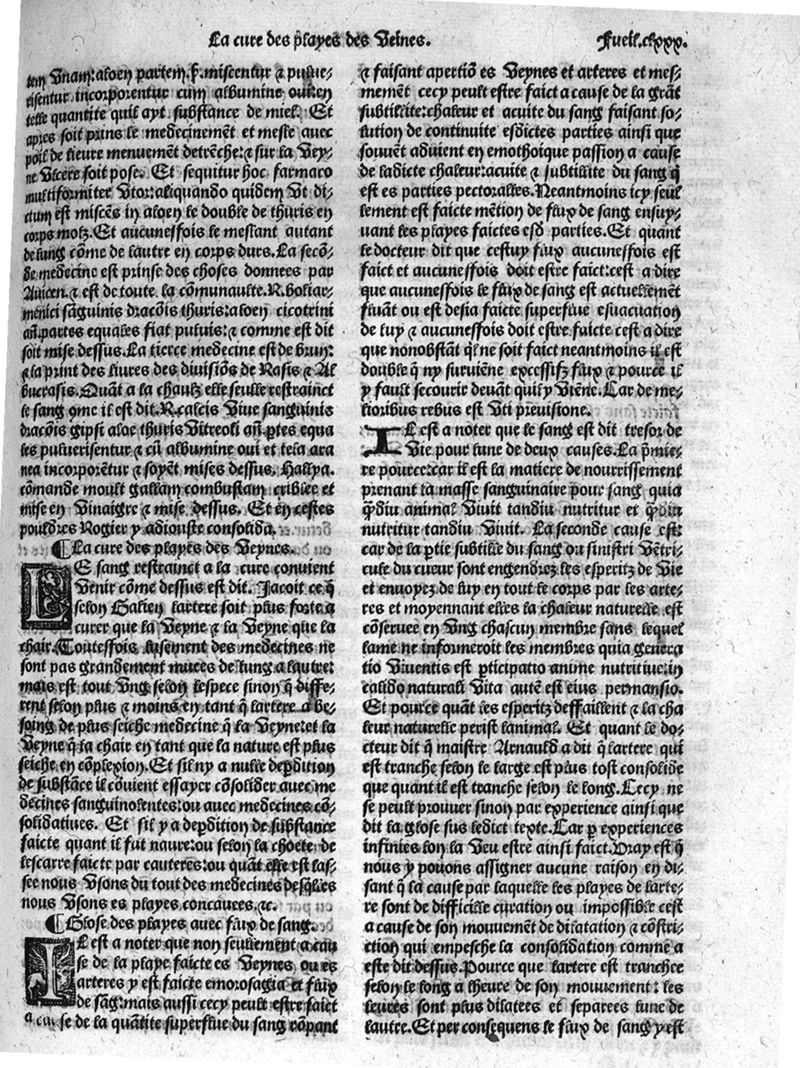 La cure des playes des Veines.
Fueil.clxxx.
tem Vnam:aloen partem.ſ.miscentur ⁊ pulue⸗
risentur incorporentur cum albumine oui:en
telle quantite quil ayt substãce de miel. Et
apres soit prins le medecinemẽt et mesle auec
poil de lieure menuement detrẽche:⁊ sur la Vey⸗
ne Vlcere soit pose. Et sequitur hoc farmaco
multiformiter Vtor:aliquando quidem Vt di⸗
ctum est miscẽs in aloen le double de thuris en
corps molz.Et aucunesfois le meslant autant
de lung cõme de lautre en corps durs.La secõ⸗
de medecine est prinse des choses donnees par
Auicen.⁊ est de toute la cõmunaulte.R.boliar⸗
menici sãguinis dracõis thuris:aloen cicotrini
añ.partes equales fiat puluis:⁊ comme est dit
soit mise dessus.La tierce medecine est de brun:
⁊ la print des liures des diuisiõs de Rasis ⁊ Al
bucrasis.Quãt a la chaulz elle seulle restrainct
le sang ꝯme il est dit.R.calcis Viue sanguinis
dracõis gipsi aloe thuris Vitreoli añ.ꝑtes equa
les puluerisentur ⁊ cũ albumine oui et tela ara
nea incorporẽtur ⁊ soyẽt mises dessus. Hallya.
cõmande moult gallam combustam criblee et
mise en Vinaigre ⁊ mise dessus. Et en cestes
pouldres Rogier y adiouste consolida.
¶La cure des playes des Veynes.
LE sang restrainct a la cure conuient
Venir cõme dessus est dit. Jacoit ce q̃
selon Galien lartere soit plus forte a
curer que la Veyne ⁊ la Veyne que la
chair.Toutesfois lusement des medecines ne
sont pas grandement muees de lung a lautre:
mais est tout Vng selon lespece sinon q̃ diffe⸗
rent selon plus ⁊ moins en tant q̃ lartere a be⸗
soing de plus seiche medecine q̃ la Veyne:et la
Veyne q̃ la chair en tant que la nature est plus
seiche en cõplexion.Et sil ny a nulle deꝑdition
de substãce il cõuient essayer cõsolider auec me
decines sanguinolentes:ou auec medecines cõ⸗
solidatiues. Et sil y a deꝑdition de substance
faicte quant il fut naure:ou selon la cheute de
lescarre faicte par cauteres:ou quãt elle est las⸗
see nous Vsons du tout des medecines desq̃lles
nous Vsons es playes concauees,⁊c.
¶Glose des playes auec flux de sang.
IL est a noter que non seullement a cau
se de la playe faicte es Veynes ou es
arteres y est faicte emorosagia et flux
de sãg:mais aussi cecy peult estre faict
a cause de la quãtite superflue du sang rõpant
⁊ faisant apertiõ es Veynes et arteres et mes⸗
memẽt cecy peult estre faict a cause de la grãt
subtilite:chaleur et acuite du sang faisant so⸗
lution de continuite esdictes parties ainsi que
souuẽt aduient en emothoique passion a cause
de ladicte chaleur:acuite ⁊ subtilite du sang q̃
est es parties pectoralles.Neantmoins icy seul
lement est faicte mẽtion de flux de sang ensuy⸗
uant les playes faictes esd̃ parties.Et quant
le docteur dit que cestuy flux aucunesfois est
faict et aucunesfois doit estre faict:cest a dire
que aucunesfois le flux de sang est actuellemẽt
fluãt ou est desia faicte superflue esuacuation
de luy ⁊ aucunesfois doit estre faicte cest a dire
que nonobstãt q̃l ne soit faict neantmoins il est
double q̃ ny suruiẽne excessif flux ⁊ pource il
y fault secourir deuãt quil y Viẽne.Car de me⸗
lioribus rebus est Vti preuisione.
IL est a noter que le sang est dit tresor de
Vie pour lune de deux causes.La p̃mie⸗
re pource:car il est la matiere de nourrissement
prenant la masse sanguinaire pour sang quia
q̃diu animal Viuit tandiu nutritur et q̃diu
nutritur tandiu Viuit. La seconde cause est:
car de la ꝑtie subtille du sang ou sinistri Vẽtri⸗
cule du cueur sont engendrez les esperitz de Vie
et enuoyez de luy en tout le corps par les arte⸗
res et moyennant elles la chaleur naturelle est
cõseruee en Vng chascun membre sans lequel
lame ne informeroit les membres quia genera
tio Viuentis est ꝑticipatio anime nutritiue:in
calido naturali Vita autẽ est eius permansio.
Et pource quãt les esperitz deffaillent ⁊ la cha
leur naturelle perist lanimal. Et quant le do⸗
cteur dit q̃ maistre Arnauld a dit q̃ lartere qui
est tranche selon le large est plus tost consolide
que quant il est tranche selon le long. Cecy ne
se peult prouuer sinon par experience ainsi que
dit la glose sus ledict texte.Car ꝑ experiences
infinies lon la Veu estre ainsi faict.Vray est q̃
nous y pouons assigner aucune raison en di⸗
sant q̃ la cause par laquelle les playes de larte⸗
re sont de difficille curation ou impossible cest
a cause de son mouuemẽt de dilatation ⁊ cõstri⸗
ction qui empesche la consolidation comme a
este dit dessus.Pource que lartere est tranchee
selon le long a lheure de son mouuement: les
leures sont plus dilatees et separees lune de
lautre.Et per consequens le flux de sang y est